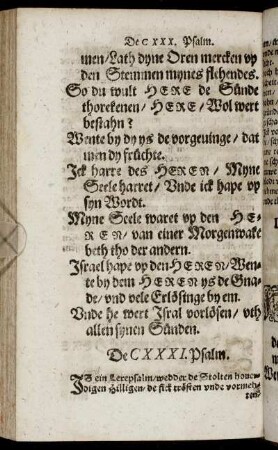 De CXXX. Psalm.
men/ Lath dyne Oren mercken vp
den Stemmen mynes flehendes.
So du wult HERE de Sünde
thorekenen/ HERE/ Wol wert
bestahn?
Wente by dy ys de vorgeuinge/ dat
men dy früchte.
Ick harre des HEREN/ Myne
Seele harret/ Vnde ick hape vp
syn Wordt.
Myne Seele waret vp den HE-
REN/ van einer Morgenwake
beth tho der andern.
Israel hape vp den HEREN/ Wen-
te by dem HEREN ys de Gna-
de/ vnd vele Erlösinge by em.
Vnde he wert Isral vorlösen/ vth
allen synen Sünden.
De CXXXI. Psalm.
IS ein Leerpsalm/ wedder de Stolten
digen Hilligen/ de sick trösten vnde vormeh-